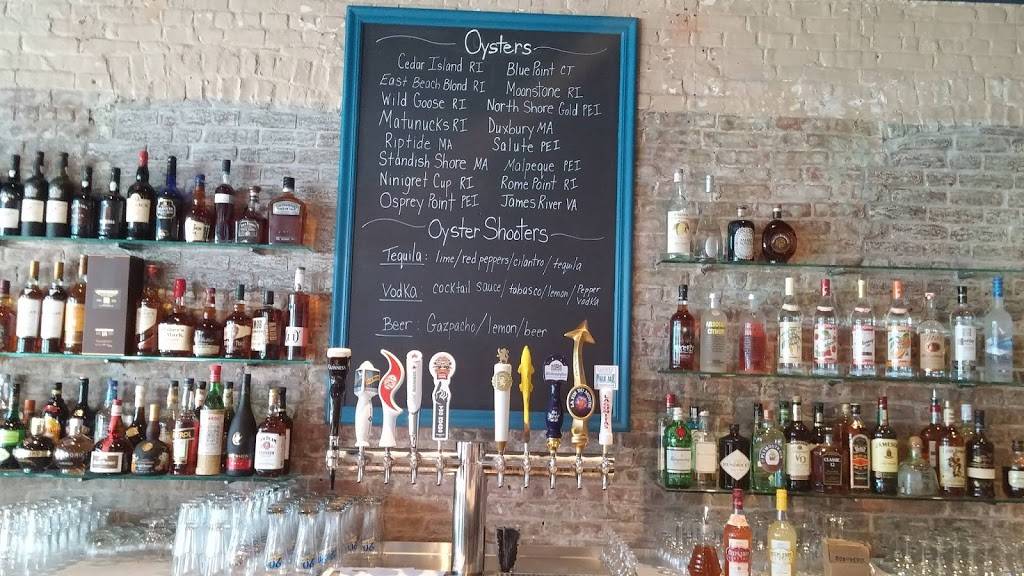 Oysters
Cedar Island RI Blue Point CT
East Beach Blond RI Moonstone RI
Wild Goose RI North Shore Gold PEI
Matunucks RI Duxbury MA
Riptide MA Salute PEI
Standish Shore MA Malpeque PEI
Ninigret Cup RI Rome Point RI
Osprey Point PEI James River VA
Oyster Shooters
Tequila: lime/red peppers/cilantro/tequila
Vodka: cocktail sauce/tobasco/lemon/Pepper vodka
Beer: Gazpacho/lemon/beer
GUINNESS
HENDRICK'S
JAMESON